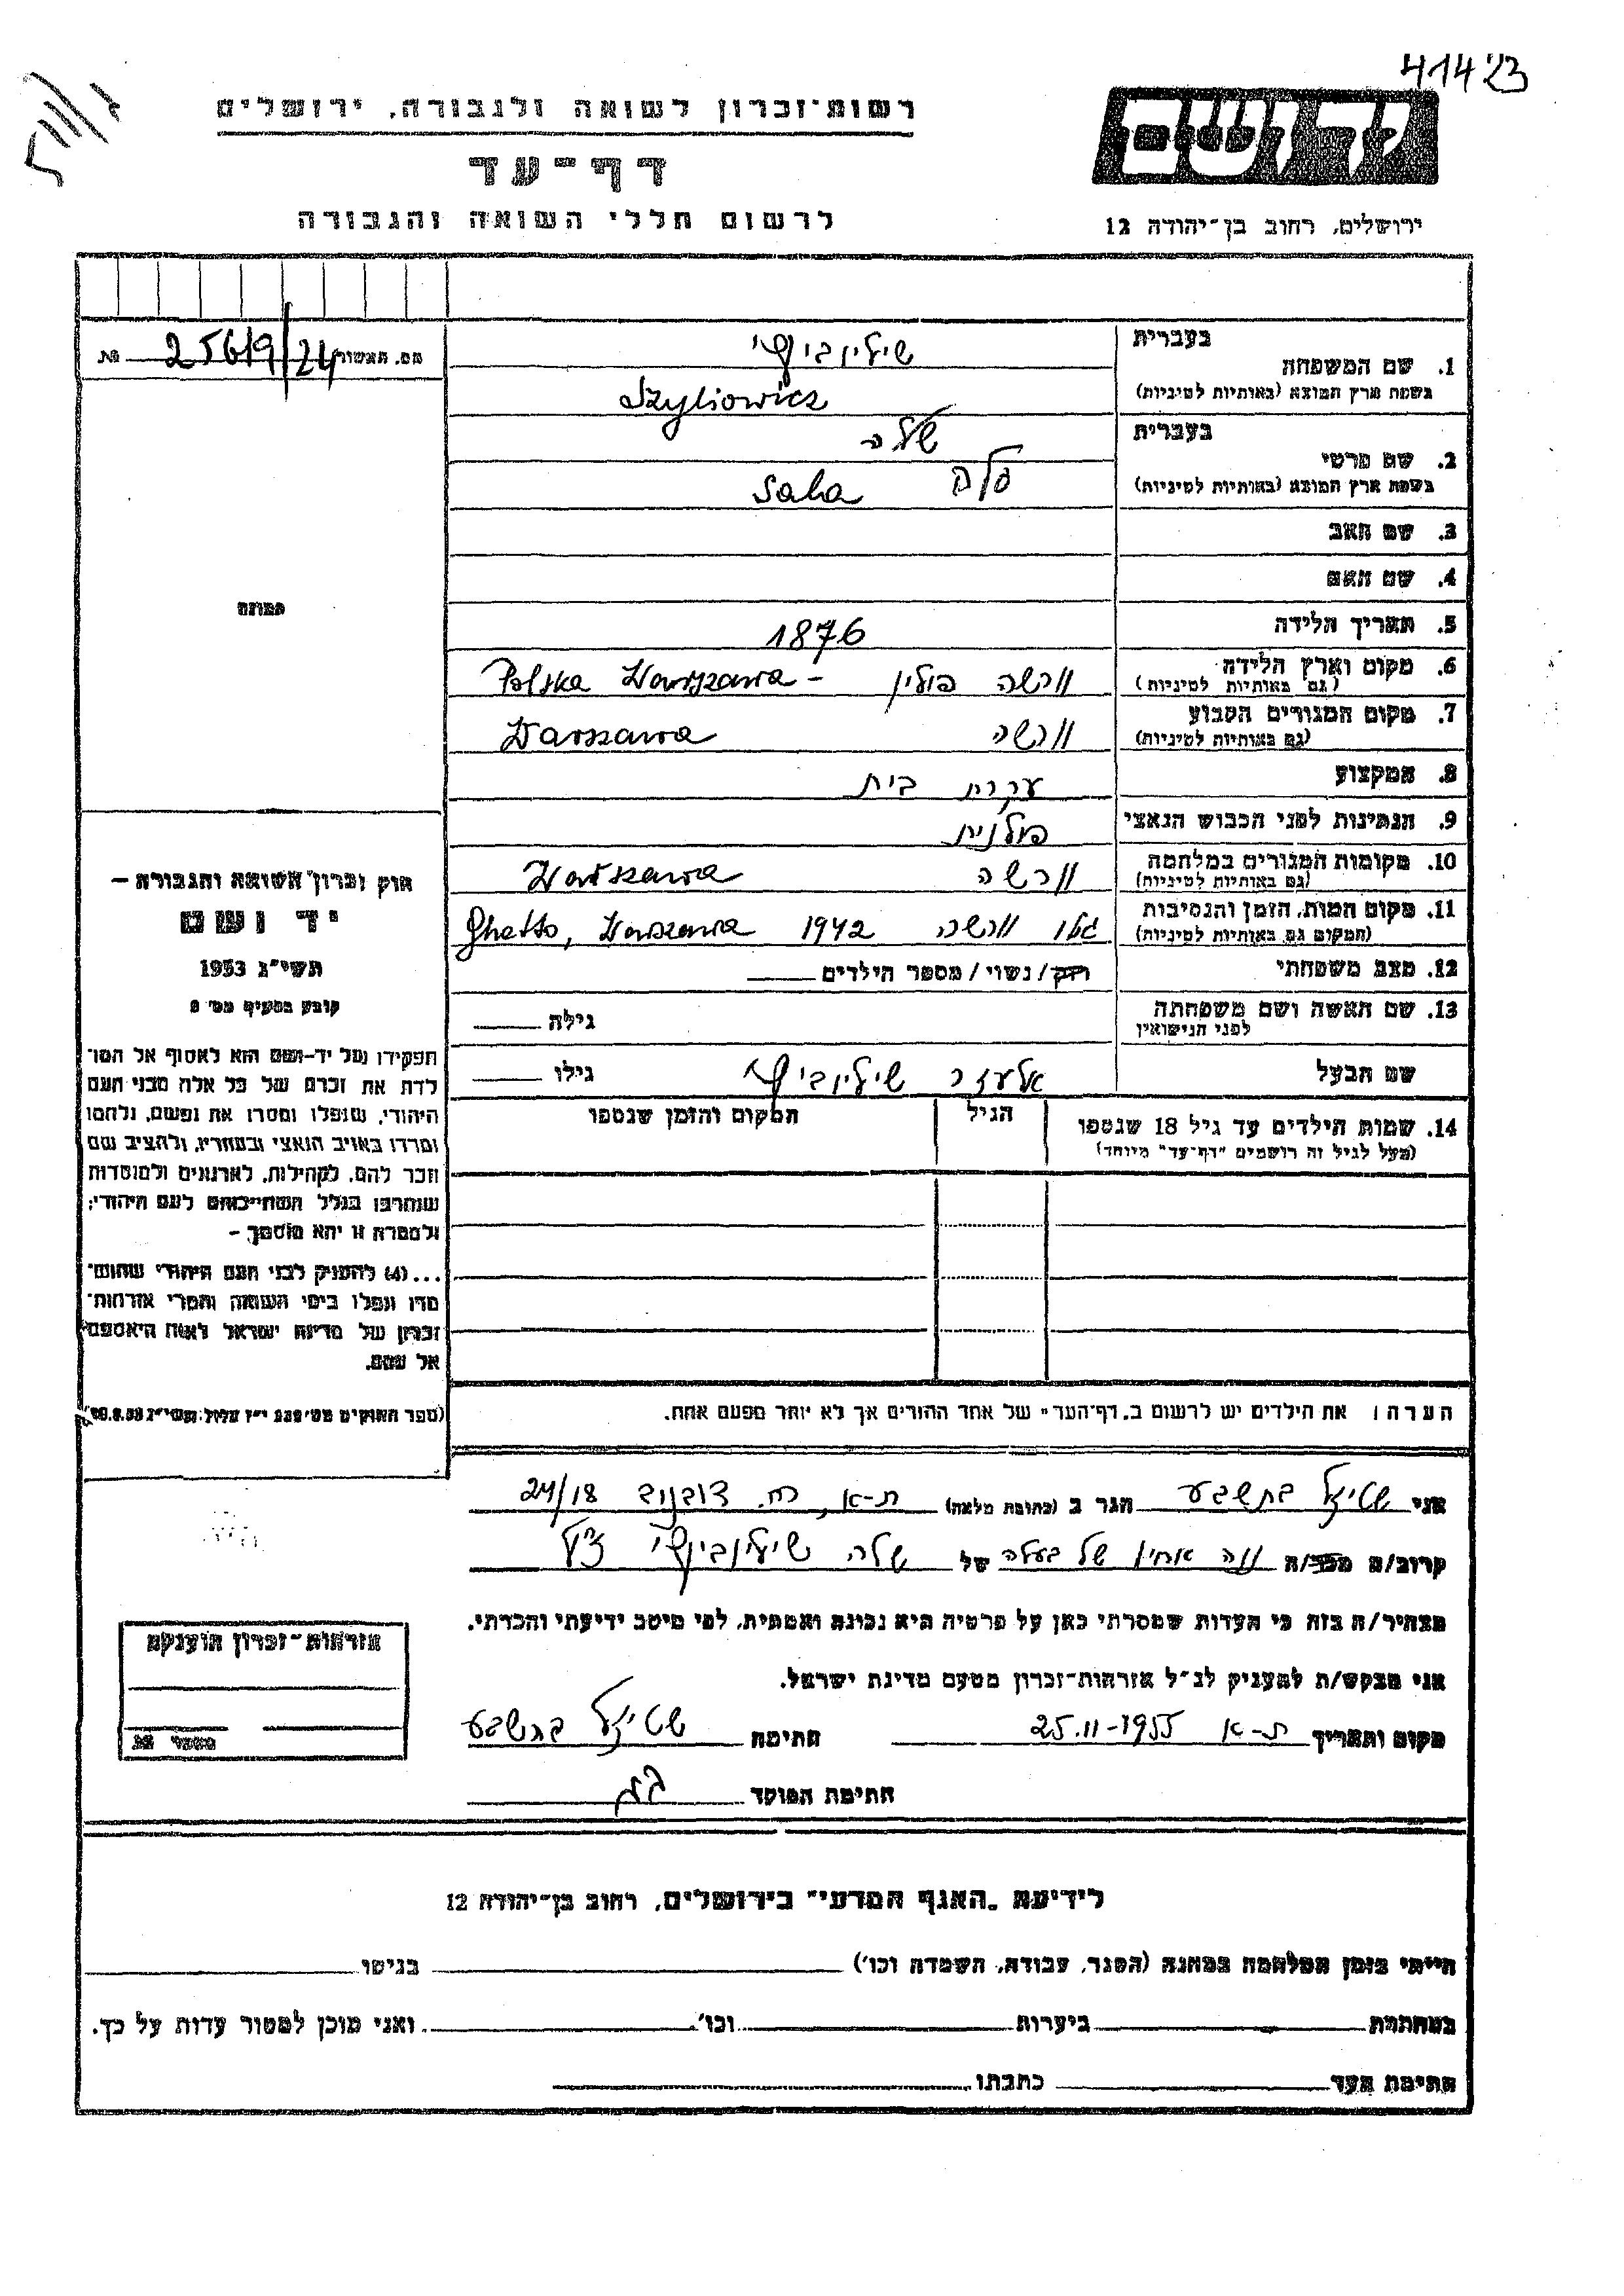 41423
יד ושם
רשות־זכרון לשואה ולגבורה, ירושלים
דף־עד
לרשום חללי השואה והגבורה
ירושלים, רחוב בן־יהודה 12
מס. האשור 25619/24 №
בעברית
1. שם המשפחה
בשפת ארץ המוצא (באותיות לטיניות)
שיליוביץ
Szyliowicz
בעברית
2. שם פרטי
בשפת ארץ המוצא (באותיות לטיניות)
שלה
סלה Sala
3. שם האב
4. שם האם
5. תאריך הלידה 1876
6. מקום וארץ הלידה וורשה פולין – Polska Warszawa
(גם באותיות לטיניות)
7. מקום המגורים הקבוע וורשה Warszawa
(גם באותיות לטיניות)
8. המקצוע עקרת בית
9. הנתינות לפני הכבוש הנאצי פולנית
10. מקומות המגורים במלחמה וורשה Warszawa
(גם באותיות לטיניות)
11. מקום המות, הזמן והנסיבות גטו וורשה 1942 Ghetto, Warszawa
(המקום גם באותיות לטיניות)
12. מצב משפחתי רוק/נשוי/מספר הילדים
13. שם האשה ושם משפחתה גילה
לפני הנישואין
שם הבעל אלעזר שיליוביץ גילו
14. שמות הילדים עד גיל 18 שנספו הגיל המקום והזמן שנספו
(מעל לגיל זה רושמים "דף־עד" מיוחד)
הערה: את הילדים יש לרשום ב"דף־העד" של אחד ההורים אך לא יותר מפעם אחת.
תמונה
חוק זכרון השואה והגבורה –
יד ושם
תשי"ג 1953
קובע בסעיף מס'
תפקידו של יד־ושם הוא לאסוף אל המו־
לדת את זכרם של כל אלה מבני העם
היהודי, שנפלו ומסרו את נפשם, נלחמו
ומרדו באויב הנאצי ובעוזריו, ולהציב שם
וזכר להם, לקהילות, לארגונים ולמוסדות
שנחרבו בגלל השתייכותם לעם היהודי;
ולמטרה זו יהא מוסמך –
...(4) להעניק לבני העם היהודי שהוש־
מדו ונפלו בימי השואה והמרי אזרחות־
זכרון של מדינת ישראל לאות היאספם
אל עמם.
(ספר החוקים מס' 132 י"ז אלול תשי"ג 28.8.53)
אני שטיגל בתשבע הגר ב (כתובת מלאה) ת-א, רח. דובנוב 24/18
קרוב/ה מכר/ה של בעלה של שלה שיליוביץ ז"ל
מצהיר/ה בזה כי העדות שמסרתי כאן על פרטיה היא נכונה ואמתית, לפי מיטב ידיעתי והכרתי.
אני מבקש/ת להעניק לנ"ל אזרחות־זכרון מטעם מדינת ישראל.
מקום ותאריך ת-א 25.11-1955 חתימה שטיגל בתשבע
חתימת הפוקד
אזרחות־זכרון הוענקה
מספר
לידיעת "האגף המדעי" בירושלים, רחוב בן־יהודה 12
הייתי בזמן המלחמה במחנה (הסגר, עבודה, השמדה וכו') בגיטו
במחתרת ביערות וכו'. ואני מוכן למסור עדות על כך.
חתימת העד כתבתו